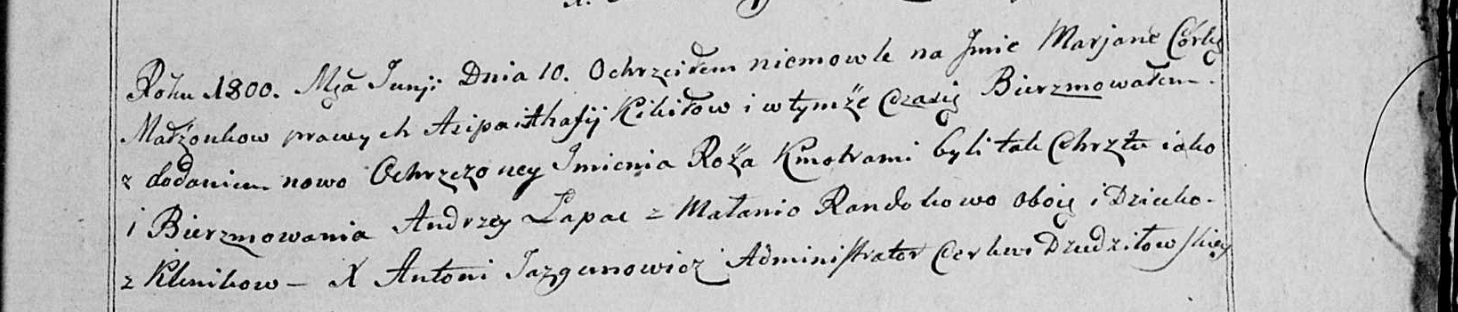 Roku 1800. Mca Junji Dnia 10. Ochrzciłem niemowle na Jmie Marjane Córkę
Małżonkow prawych Asipa i Ahafij Kikiłow i w tymże Czasię Bierzmowałem.
z dodaniem nowo Ochrzczoney Jmienia Roża Kmotrami byli tak Chrztu iako
i Bierzmowania Andrzey Łapac z Matanio Randokowo oboię i Dziecko.
z Klenikow – X Antoni Jazgunowicz Administrator Cerkwi Dzedziłowskiey